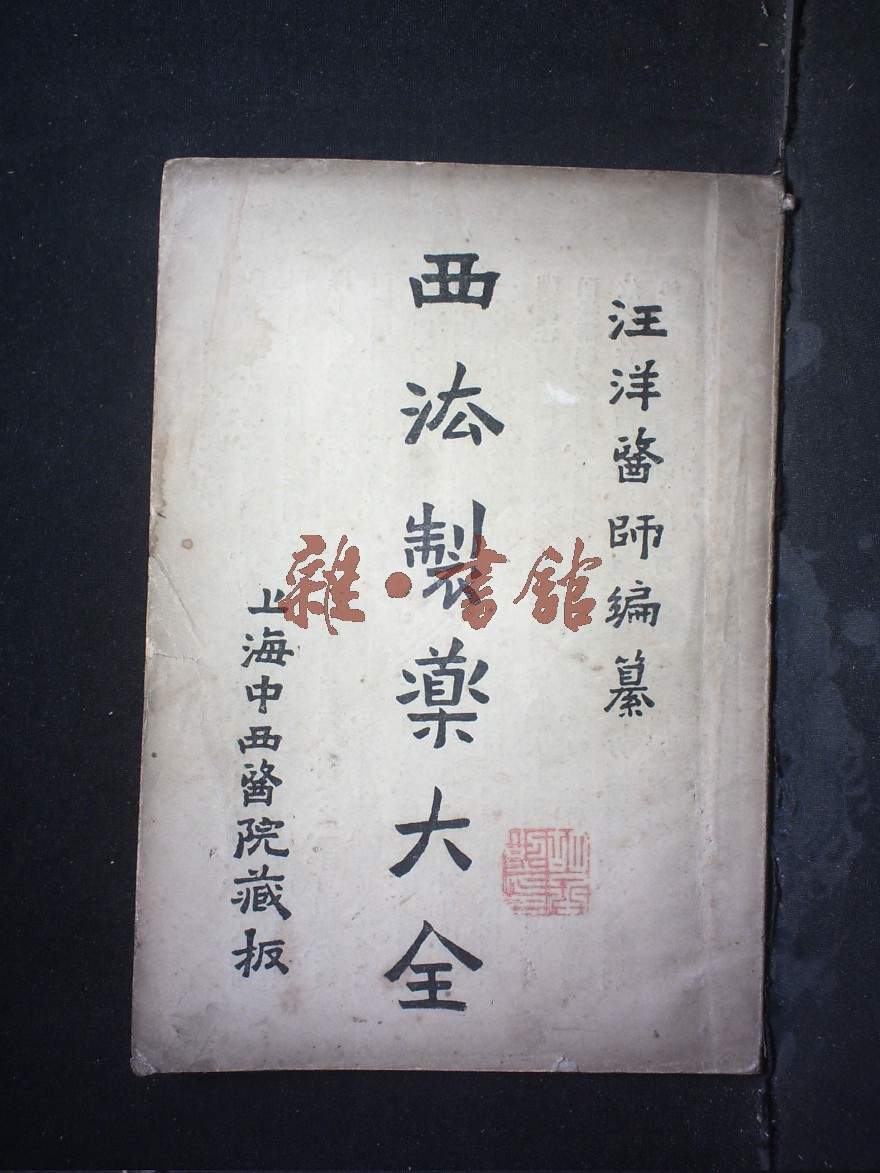 汪洋醫師編纂
西法製藥大全
上海中西醫院藏板
雜·書館